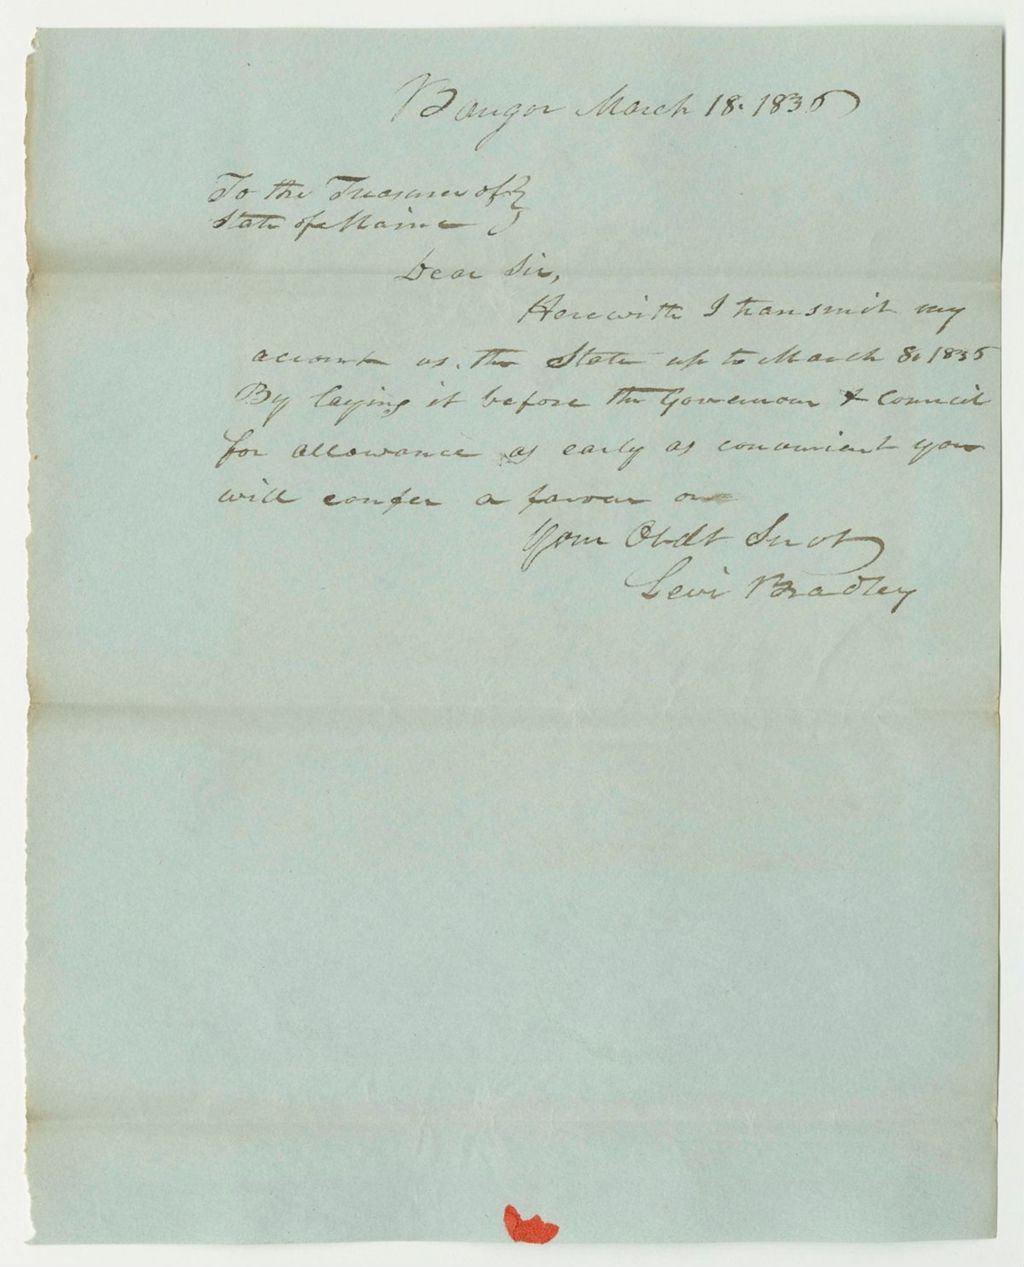 Bangor March 18. 1835
To the Treasurer of }
State of Maine
Dear Sir,
Herewith I transmit my
account vs. the State up to March 8. 1835
By laying it before the Governour & Council
for allowance as early as convenient you
will confer a favour on
Your Obdt Servt
Levi Bradley